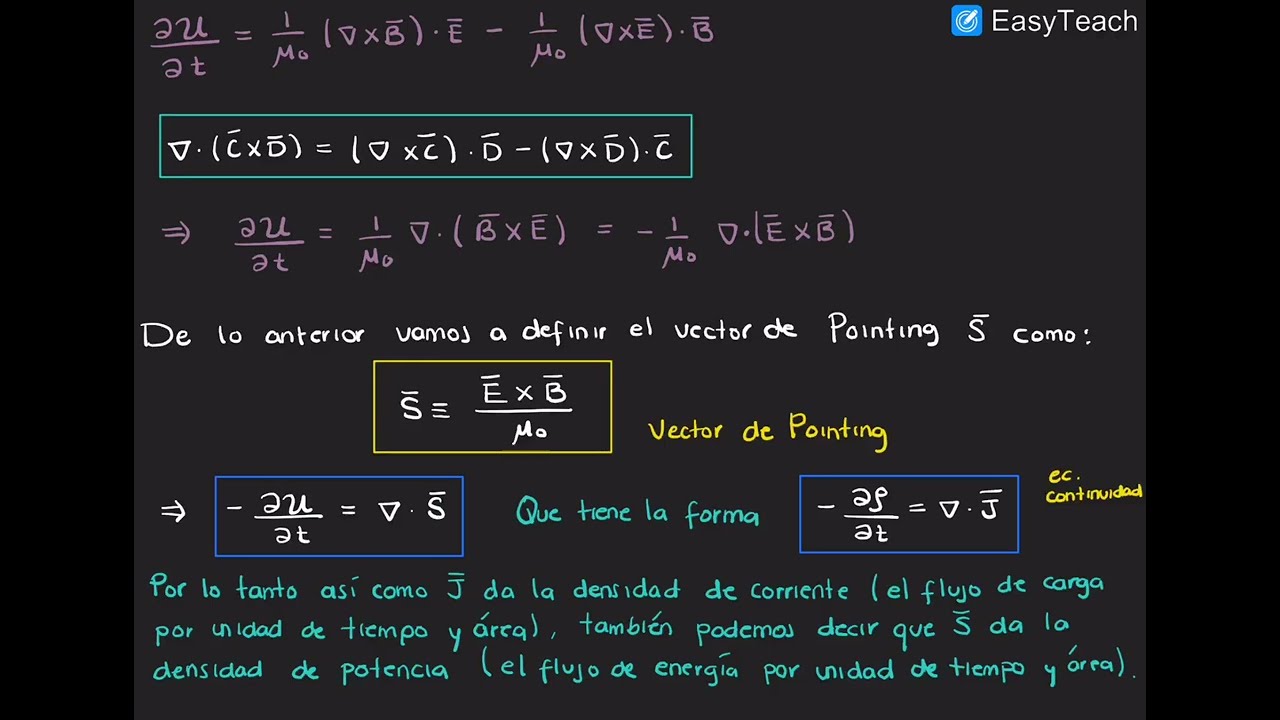 EasyTeach
∂u/∂t = 1/μ₀ (∇×B̄)·Ē − 1/μ₀ (∇×Ē)·B̄
∇·(C̄×D̄) = (∇×C̄)·D̄ − (∇×D̄)·C̄
⇒ ∂u/∂t = 1/μ₀ ∇·(B̄×Ē) = −1/μ₀ ∇·(Ē×B̄)
De lo anterior vamos a definir el vector de Pointing S̄ como:
S̄ ≡ Ē×B̄/μ₀ Vector de Pointing
⇒ −∂u/∂t = ∇·S̄ Que tiene la forma −∂ρ/∂t = ∇·J̄ ec. continuidad
Por lo tanto así como J̄ da la densidad de corriente (el flujo de carga
por unidad de tiempo y área), también podemos decir que S̄ da la
densidad de potencia (el flujo de energía por unidad de tiempo y área).